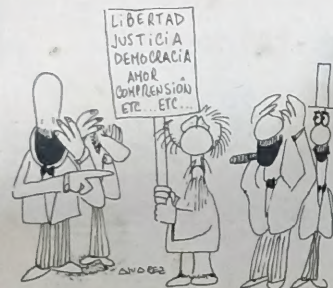 LIBERTAD
JUSTICIA
DEMOCRACIA
AMOR
COMPRENSIÓN
ETC... ETC...